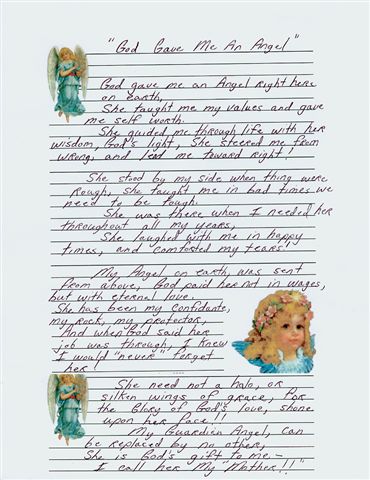 "God Gave Me An Angel"
God gave me an Angel right here
on earth,
She taught me my values and gave
me self worth.
She guided me through life with her
wisdom, God's light, She steered me from
wrong, and lead me toward right!
She stood by my side when thing were
rough, she taught me in bad times we
need to be tough.
She was there when I needed her
throughout all my years,
She laughed with me in happy
times, and comforted my tears!
My Angel on earth, was sent
from above, God paid her not in wages,
but with eternal love.
She has been my confidante,
my rock, my protector,
And when God said her
job was through, I knew
I would "never" forget
her!
She need not a halo, or
silken wings of grace, for
the Glory of God's love, shone
upon her face!!
My Guardian Angel, can
be replaced by no other,
She is God's gift to me. -
I call her My "Mother!!"